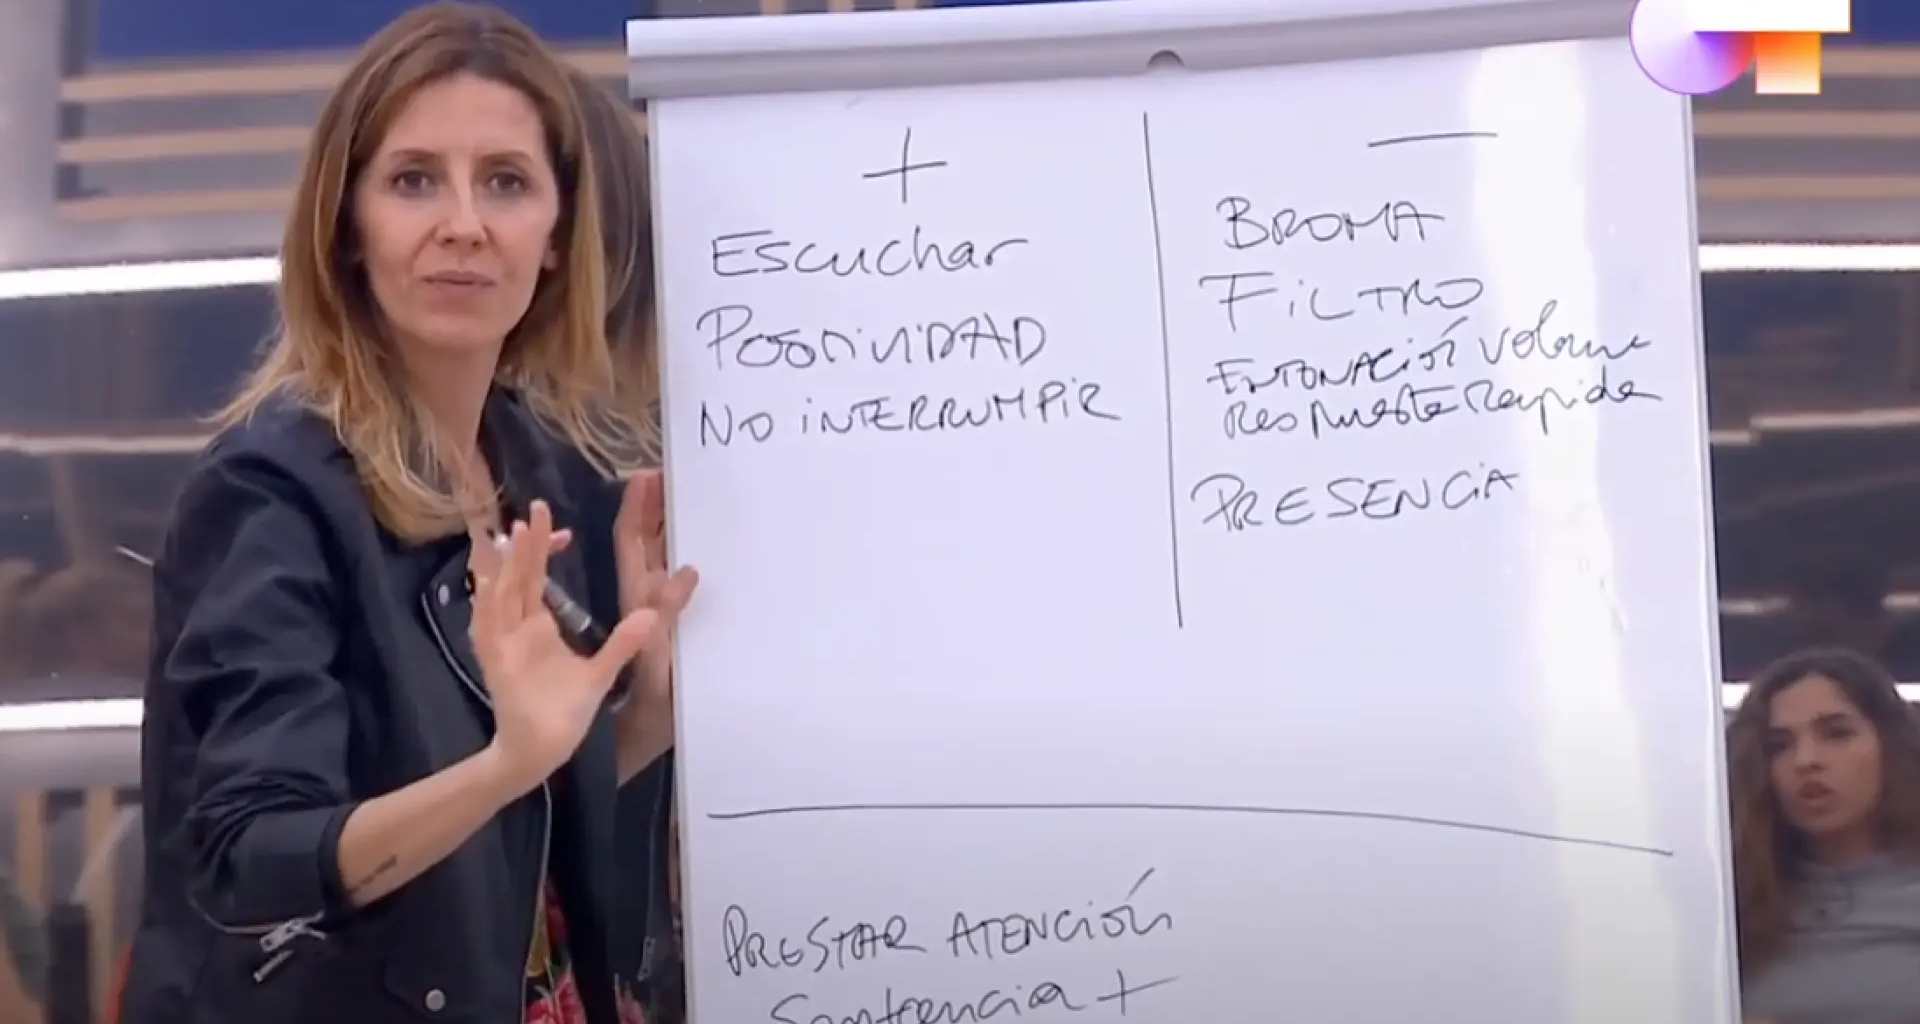 +
Escuchar
POSITIVIDAD
NO INTERRUMPIR
—
BROMA
FILTRO
ENTONACIÓN Volumen
Respuesta Rápida
PRESENCIA
PRESTAR ATENCIÓN
+
OT